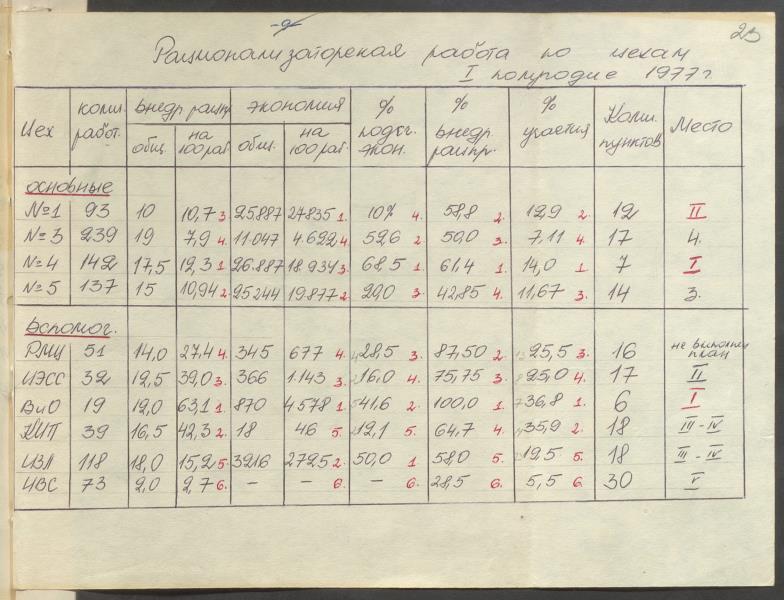 23
Рационализаторская работа по цехам
I полугодие 1977 г.
Цех колич. работ. внедр рацпр экономия % подсч. экон. % внедр. рацпр. % участия Колич. пунктов Место
общ. на 100 раб. общ. на 100 раб.
основные
№1 93 10 10,7 3 25887 27835 1. 10% 4. 58,8 2. 12,9 2. 12 II
№3 239 19 7,9 4. 11.047 4.622 4. 52,6 2. 50,0 3. 7,11 4. 17 4.
№4 142 17,5 12,3 1 26.887 18.934 3. 68,5 1. 61,4 1. 14,0 1 7 I
№5 137 15 10,94 2. 25244 19.877 2. 20,0 3. 42,85 4. 11,67 3. 14 3.
Вспомог.
РМЦ 51 14,0 27,4 4. 345 677 4. 28,5 3. 87,50 2. 25,5 3. 16 не выполнен план
ЦЭСС 32 12,5 39,0 3. 366 1.143 3. 16,0 4. 75,75 3. 25,0 4. 17 II
ВиО 19 12,0 63,1 1. 870 4578 1. 41,6 2. 100,0 1. 36,8 1. 6 I
КИП 39 16,5 42,3 2. 18 46 5. 12,1 5. 64,7 4. 35,9 2. 18 III - IV
ЦЗЛ 118 18,0 15,2 5. 3216 2725 2. 50,0 1 58,0 5. 19,5 5. 18 III - IV
ЦВС 73 2,0 2,7 6. - - 6. - 6. 28,5 6. 5,5 6. 30 V